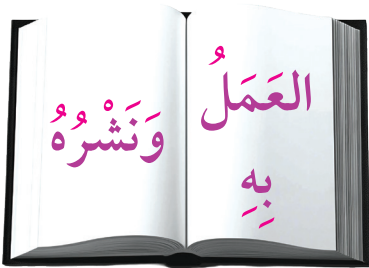 العَمَلُ
بِهِ
وَنَشْرُهُ